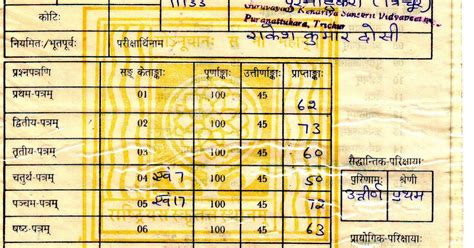 कोटिः 11133
Guruvayoor Kendriya Sanskrit Vidyapeetha
Puranattukara, Trichur
नियमितः/भूतपूर्वः परीक्षार्थिनाम राकेश कुमार दोसी
प्रश्नपत्रणि सङ्केताङ्काः पूर्णाङ्काः उत्तीर्णाङ्काः प्राप्ताङ्काः
प्रथम-पत्रम् 01 100 45 62
द्वितीय-पत्रम् 02 100 45 73
तृतीय-पत्रम् 03 100 45 60
सैद्धान्तिक-परिक्षायाः
चतुर्थ-पत्रम् 04 एवं 7 100 45 50
परिणामः श्रेणी
पञ्चम-पत्रम् 05 एवं 17 100 45 72
उत्तीर्ण प्रथम
षष्ठ-पत्रम् 06 100 45 63
प्रायोगिक-परिक्षायाः